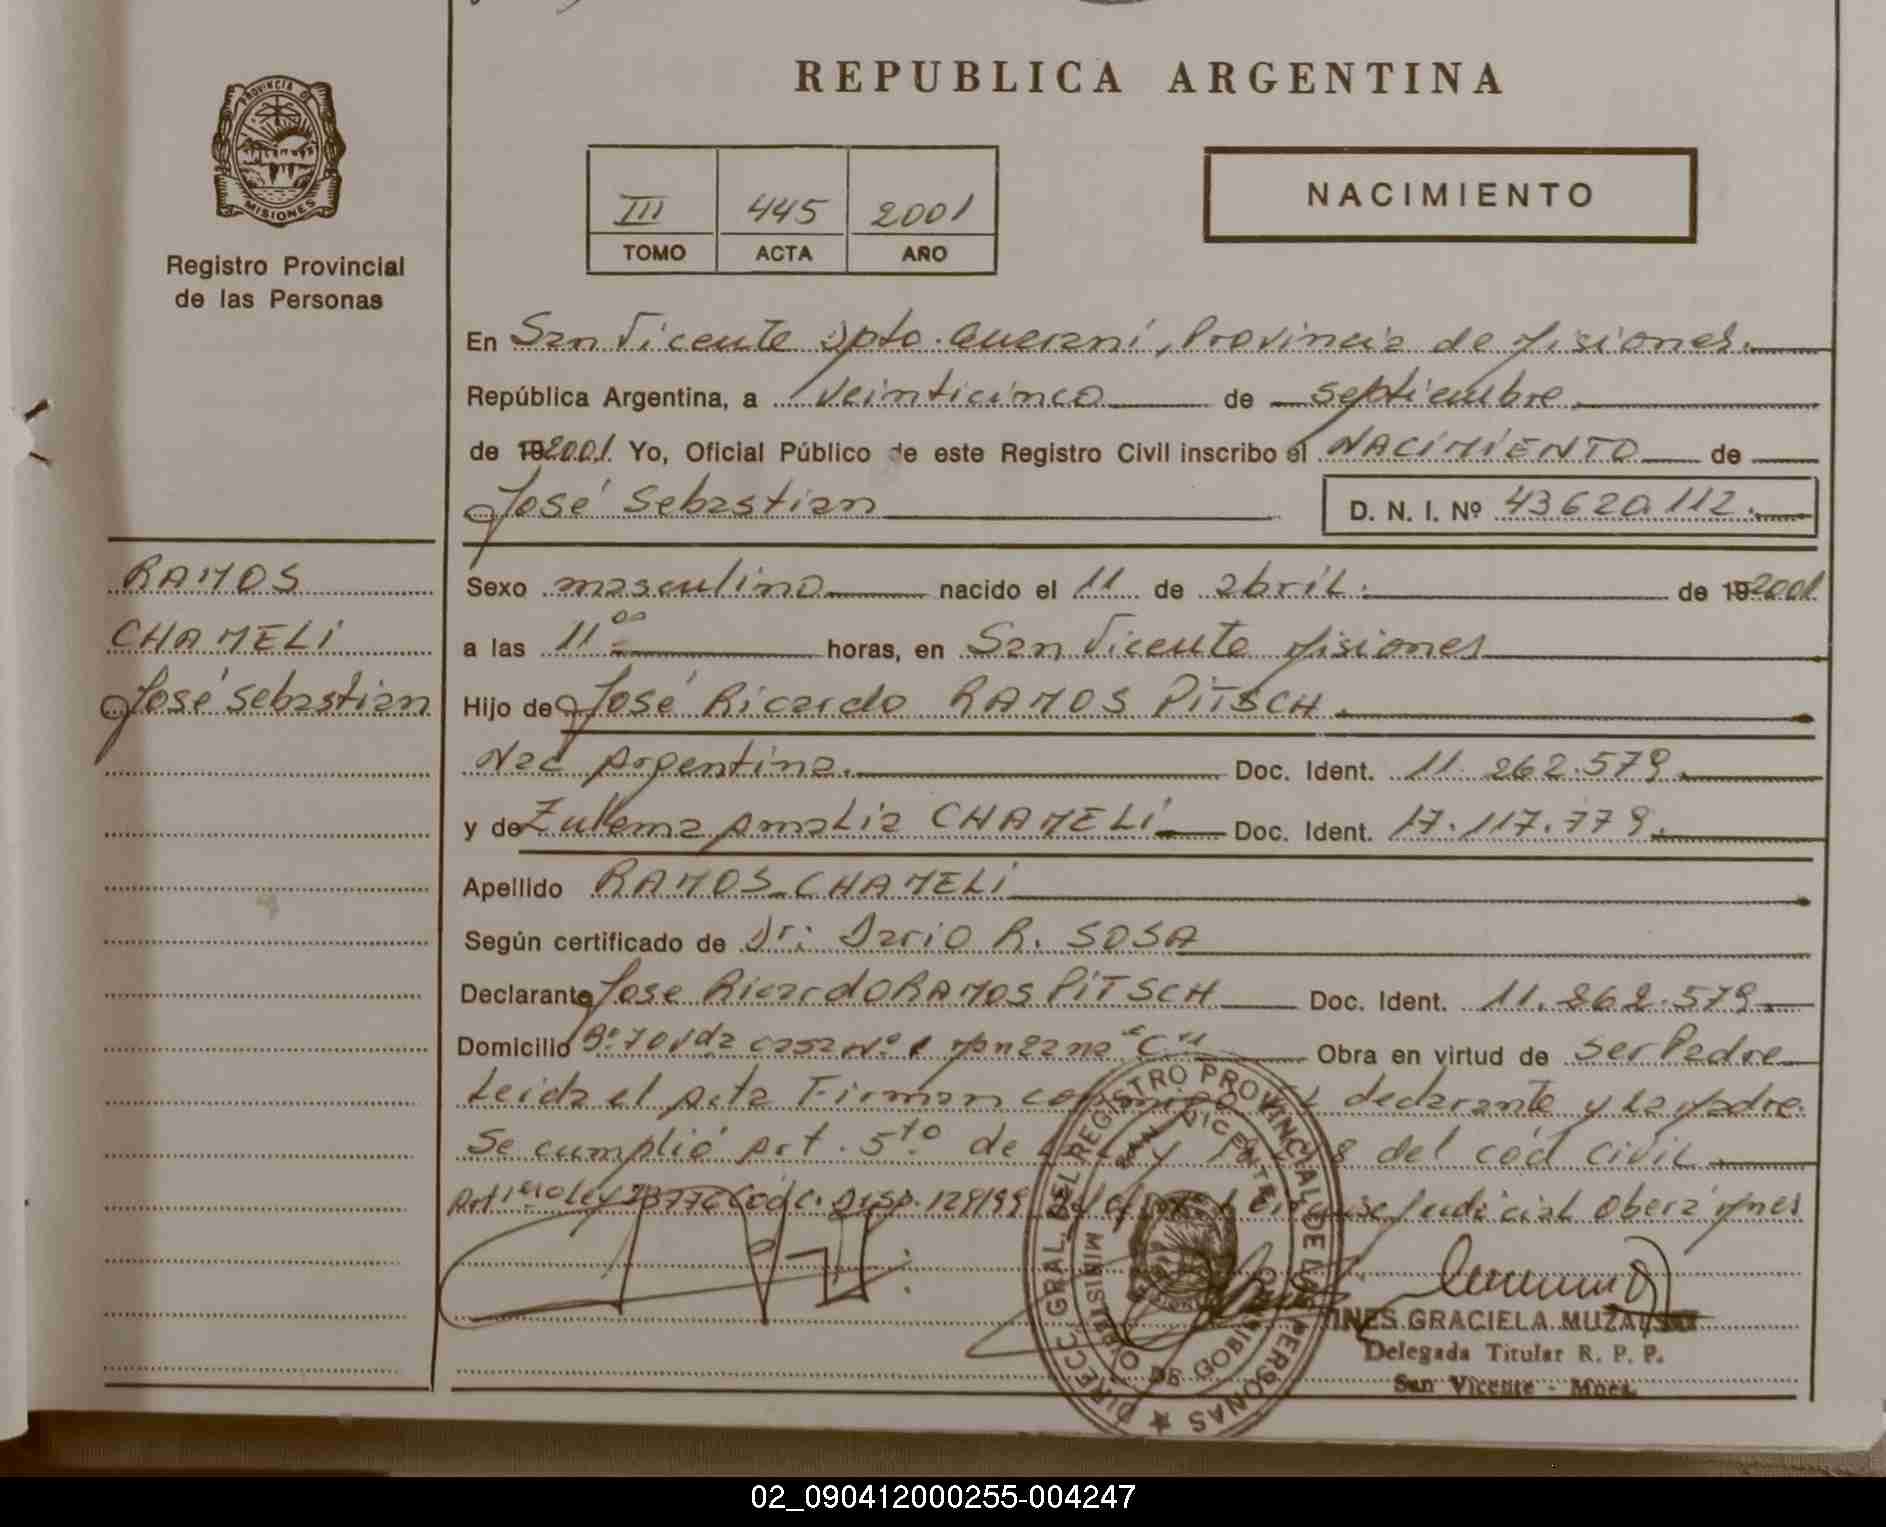 REPUBLICA ARGENTINA
PROVINCIA DE
MISIONES
Registro Provincial
de las Personas
III 445 2001
TOMO ACTA AÑO
NACIMIENTO
En San Vicente Dpto. Guaraní, Provincia de Misiones.
República Argentina, a veinticinco de septiembre
de 19 2001. Yo, Oficial Público de este Registro Civil inscribo el NACIMIENTO de
José Sebastian D. N. I. Nº 43620.112.
RAMOS
CHAMELI
José Sebastian
Sexo masculino nacido el 11 de abril. de 19 2001
a las 11 00 horas, en San Vicente Misiones
Hijo de José Ricardo RAMOS PITSCH.
Nac Argentina. Doc. Ident. 11.262.579.
y de Zulema Amalia CHAMELI Doc. Ident. 17.117.779.
Apellido RAMOS CHAMELI
Según certificado de Dr: Dario R. SOSA
Declarante Jose Ricardo RAMOS PITSCH Doc. Ident. 11.262.579.
Domicilio casa Nº Manzana "C" Obra en virtud de ser Padre
Leida el Acta Firman conmigo el declarante y la Madre.
Se cumplió Art. 5to. de del cód civil
Ley 23776 Disp. 129/99 Judicial Oberá Mnes
DIRECC. GRAL. DEL REGISTRO PROVINCIAL DE LAS PERSONAS
SAN VICENTE
MINISTERIO DE GOBIERNO
INES GRACIELA
Delegada Titular R. P. P.
San Vicente - Mnes.
02_090412000255-004247